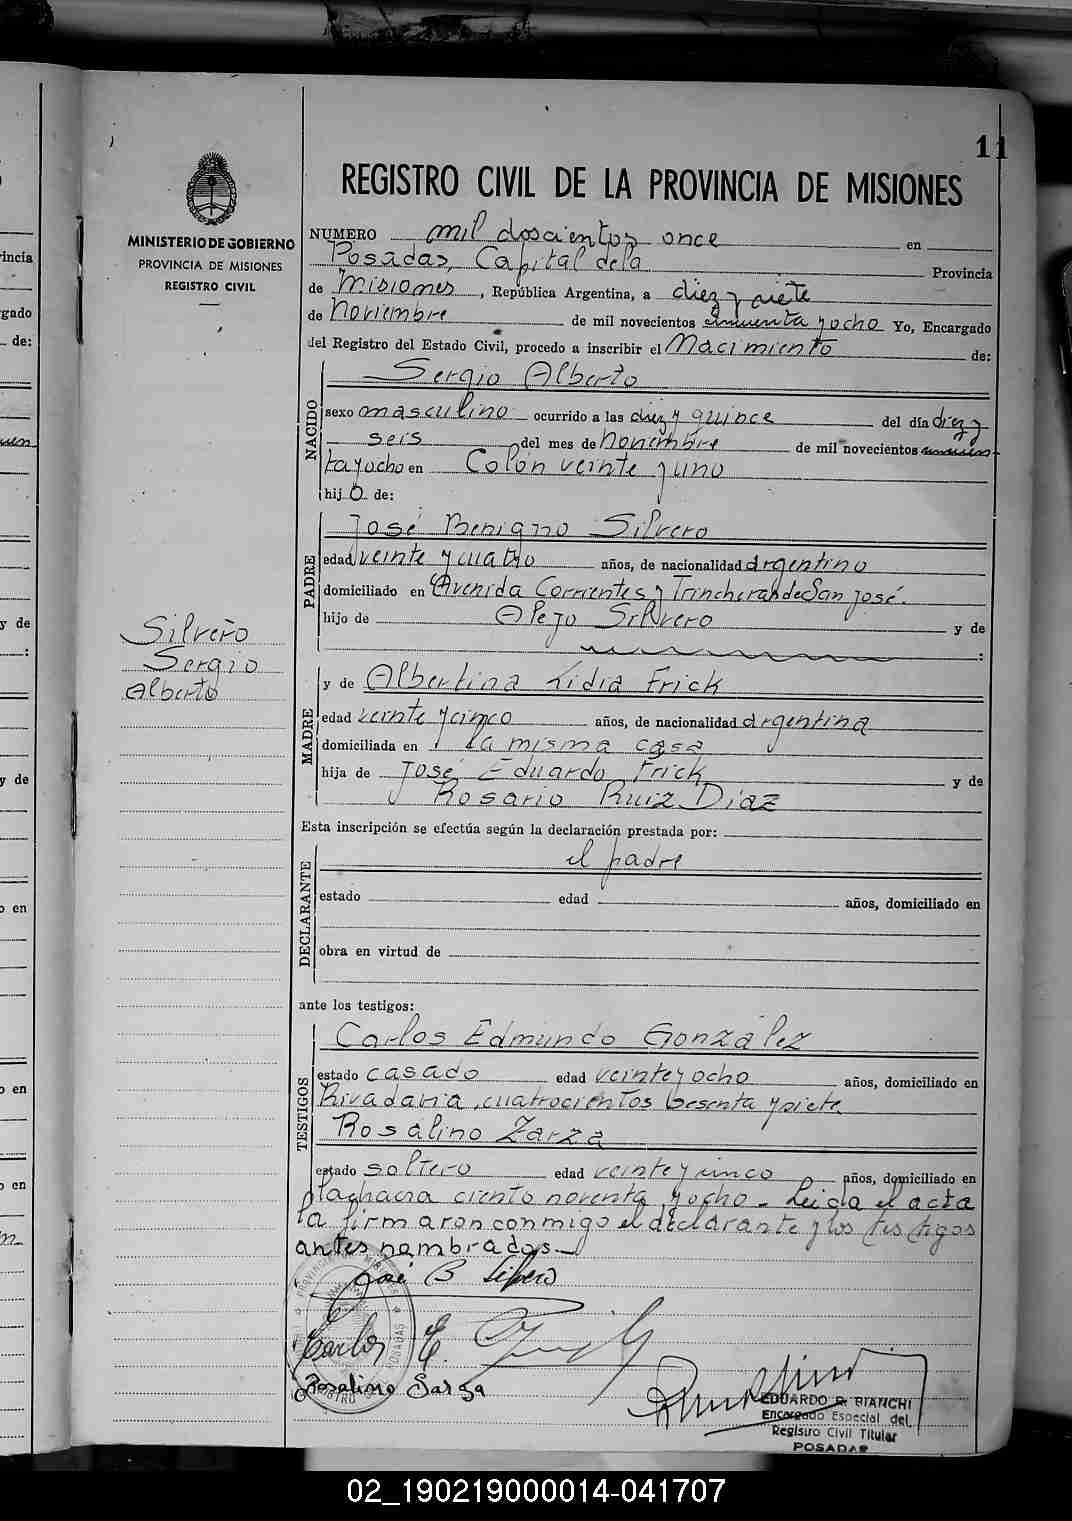 11
REGISTRO CIVIL DE LA PROVINCIA DE MISIONES
MINISTERIO DE GOBIERNO
PROVINCIA DE MISIONES
REGISTRO CIVIL
NUMERO mil doscientos once en
Posadas, Capital de la Provincia
de Misiones, República Argentina, a diez y siete
de Noviembre de mil novecientos cincuenta y ocho Yo, Encargado
del Registro del Estado Civil, procedo a inscribir el Nacimiento de:
NACIDO
Sergio Alberto
sexo masculino ocurrido a las diez y quince del día diez y
seis del mes de noviembre de mil novecientos cincuen-
ta y ocho en Colón veinte y uno
hijo de:
PADRE
José Benigno Silvero
edad veinte y cuatro años, de nacionalidad argentino
domiciliado en Avenida Corrientes y Trincheras de San José.
hijo de Alejo Silvero y de
:
Silvero
Sergio
Alberto
MADRE
y de Albertina Lidia Frick
edad veinte y cinco años, de nacionalidad argentina
domiciliada en la misma casa
hija de José Eduardo Frick y de
Rosario Ruiz Diaz
Esta inscripción se efectúa según la declaración prestada por:
DECLARANTE
el padre
estado edad años, domiciliado en
obra en virtud de
ante los testigos:
TESTIGOS
Carlos Edmundo González
estado casado edad veinte y ocho años, domiciliado en
Rivadavia, cuatrocientos sesenta y siete
Rosalino Zarza
estado soltero edad veinte y cinco años, domiciliado en
la chacra ciento noventa y ocho - Leida el acta
la firmaron conmigo el declarante y los testigos
antes nombrados.-
José B Silvero
Carlos E.
Rosalino Sarza
EDUARDO R. BIANCHI
Encargado Especial del
Registro Civil Titular
POSADAS
02_190219000014-041707